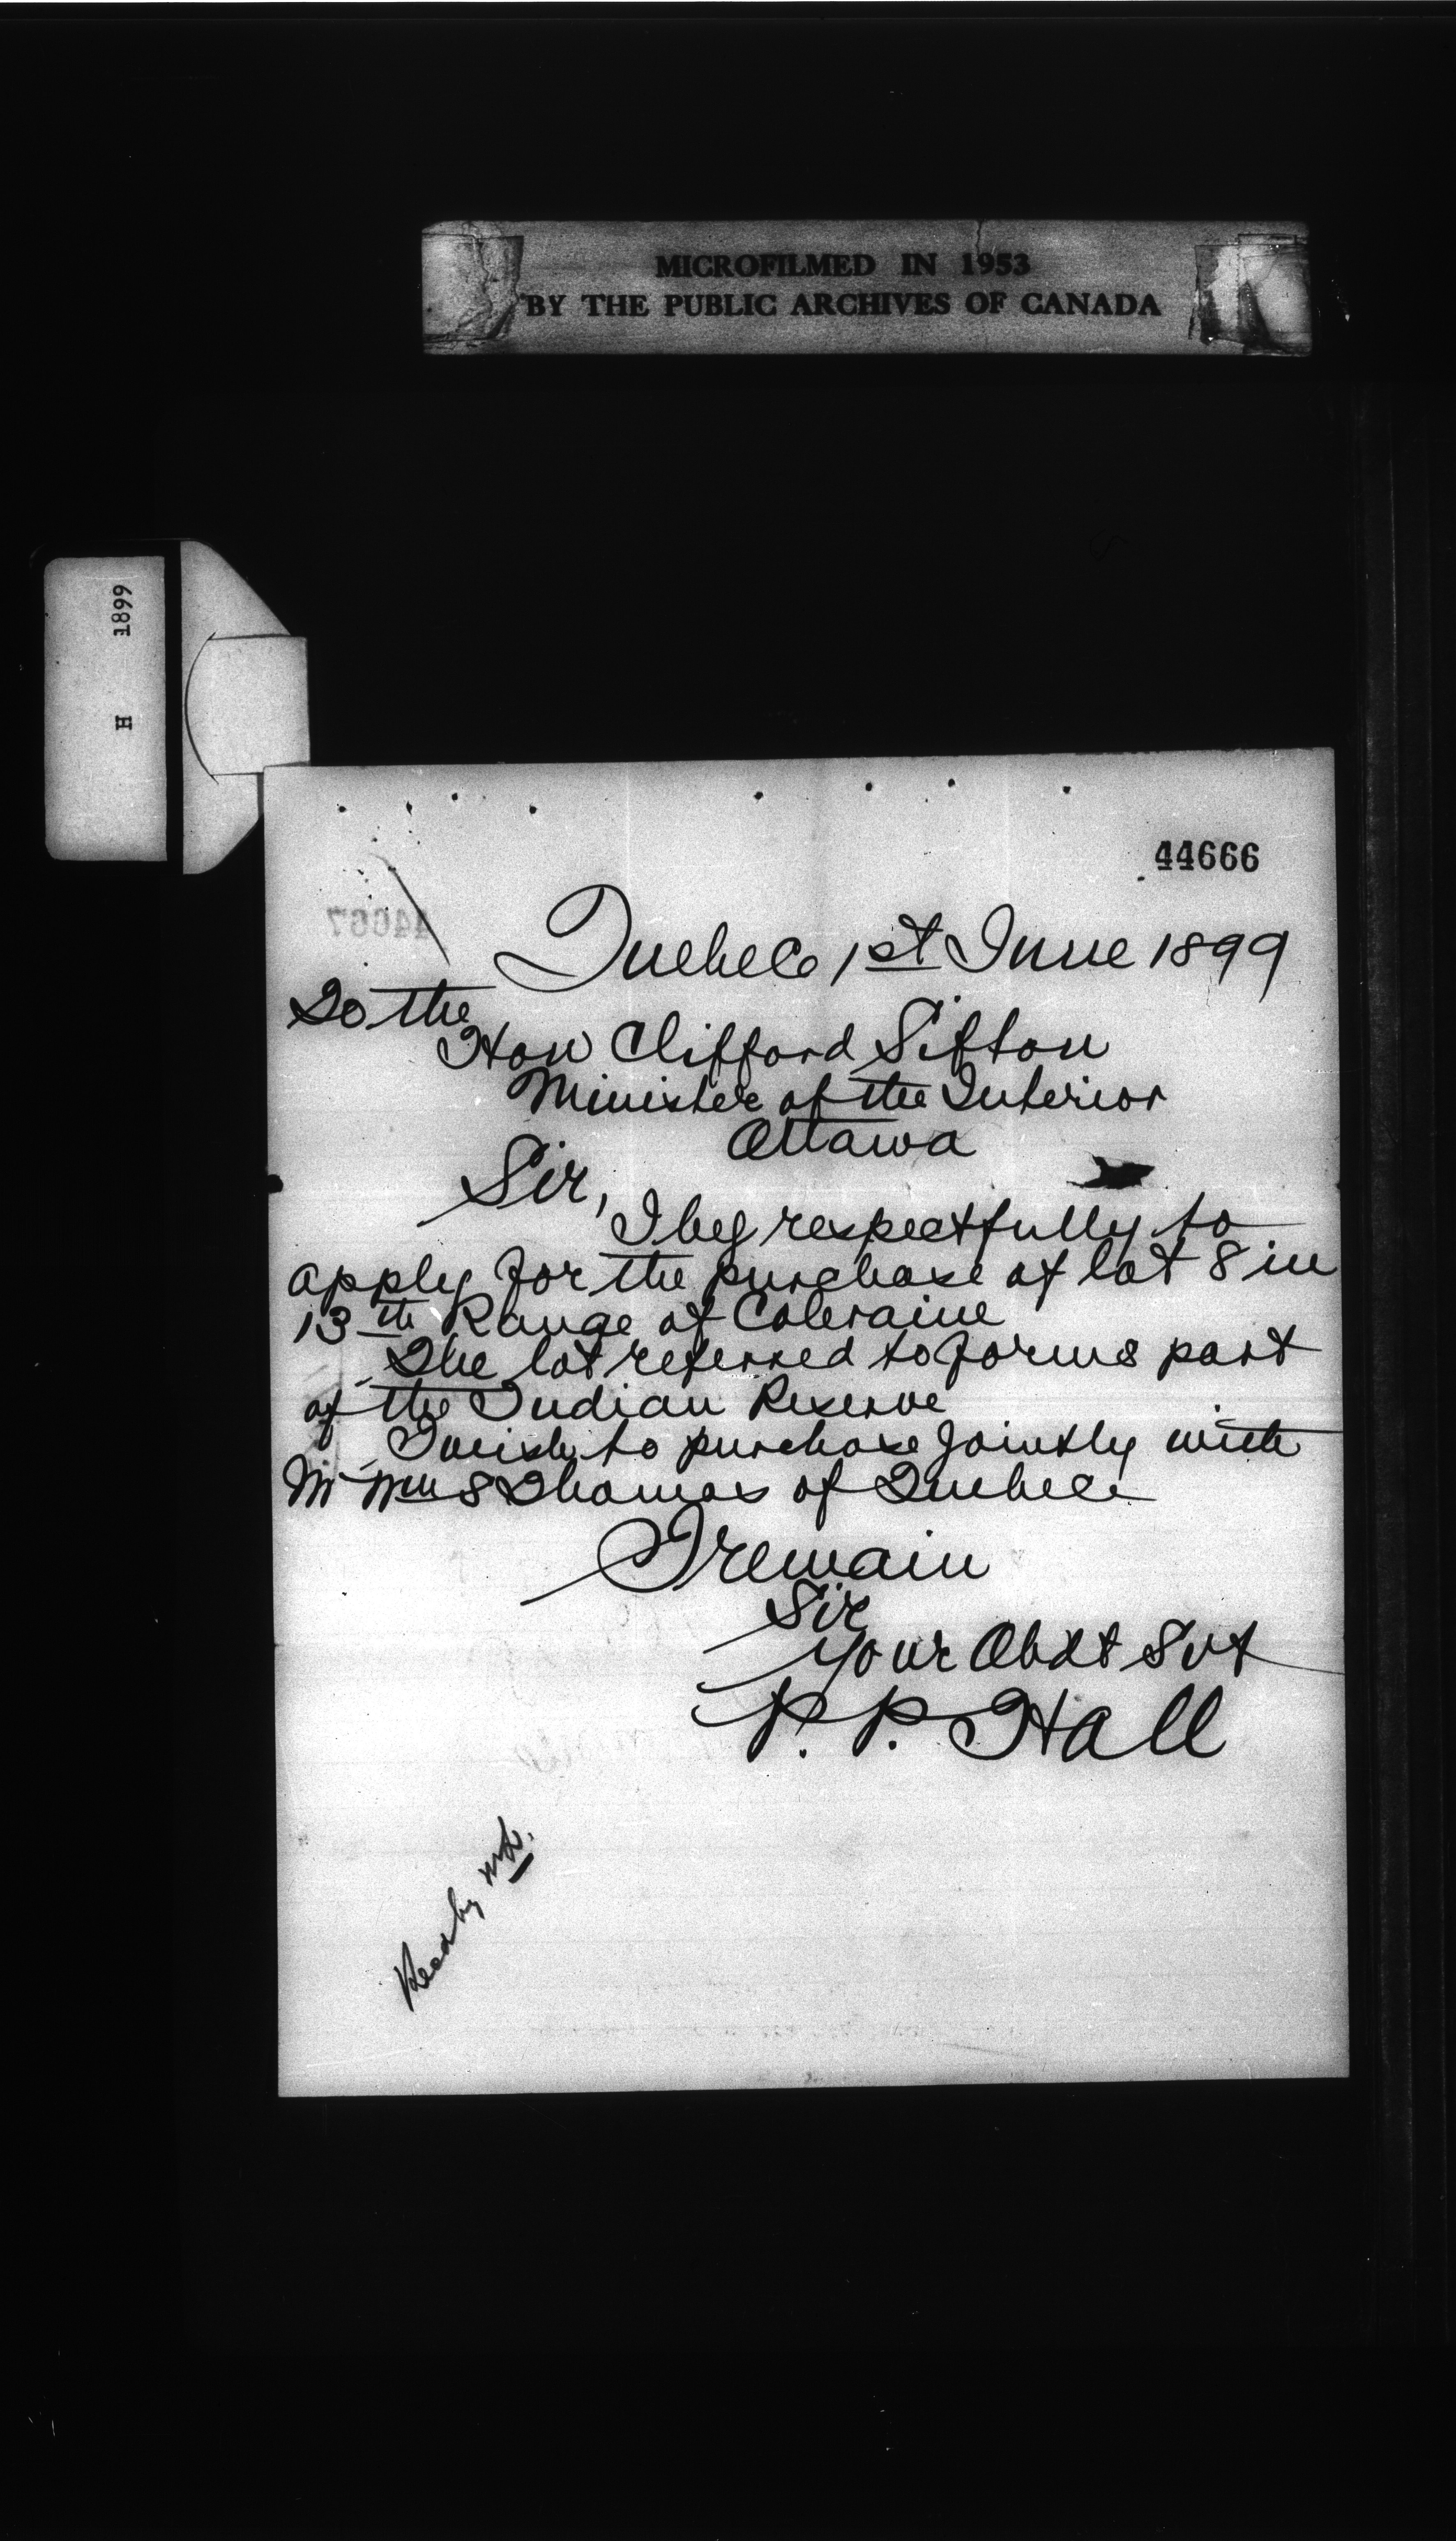 MICROFILMED IN 1953
BY THE PUBLIC ARCHIVES OF CANADA
H 1899
44666
44667
Quebec 1st June 1899
To the
Hon Clifford Sifton
Minister of the Interior
Ottawa
Sir,
I beg respectfully to
apply for the purchase of lot 8 in
13th Range of Coleraine
The lot referred to forms part
of the Indian Reserve
I wish to purchase jointly with
Mr Wm S Thomas of Quebec
I remain
Sir
Your Obdt Svt
P. P. Hall
Read by